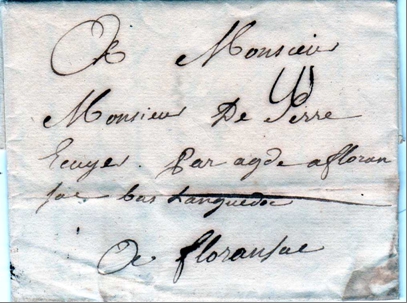 A Monsieur
Monsieur De Serre
Ecuyer par agde a floran
sac bas Languedoc
A floransac